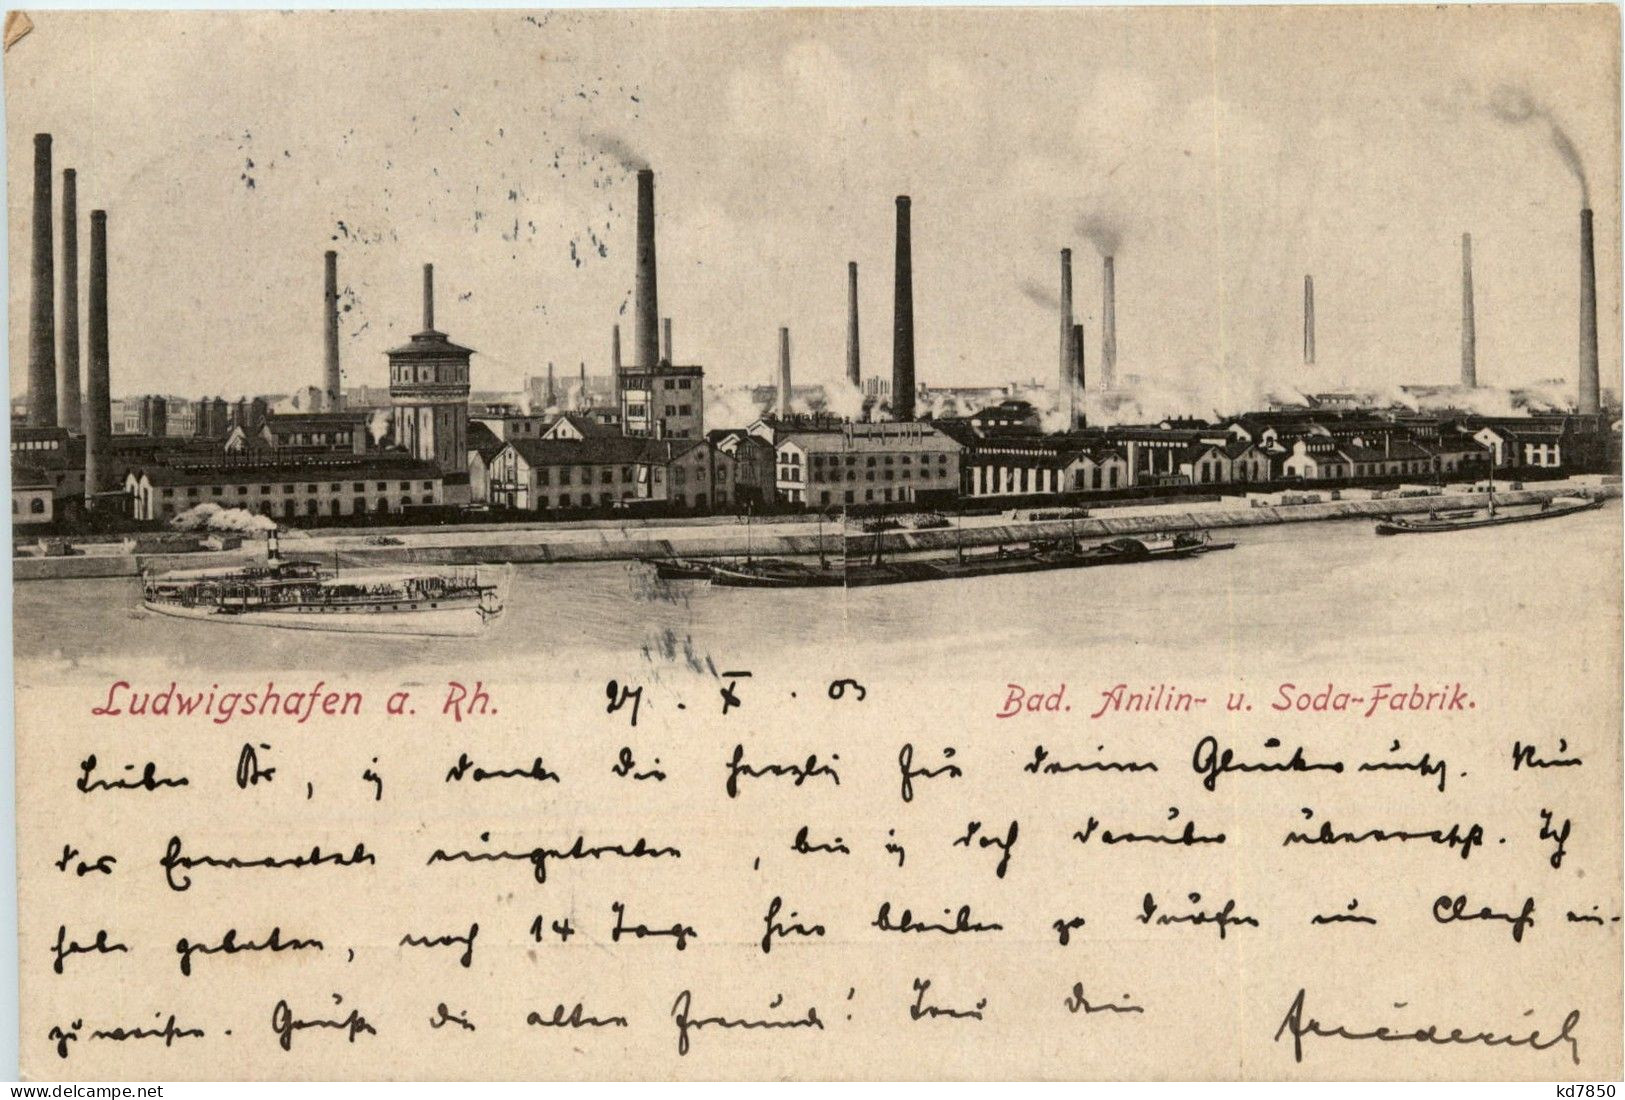 Ludwigshafen a. Rh. 27. X. 03 Bad. Anilin- u. Soda-Fabrik.
Lieber, ich danke dir herzlich für deinen Glückwunsch. Nun
das Erwartete eingetreten, bin ich doch darüber überrascht. Ich
habe gebeten, noch 14 Tage hier bleiben zu dürfen um ein-
zuweisen. Grüße die alten Freunde! Treu dein Friederich
kd7850